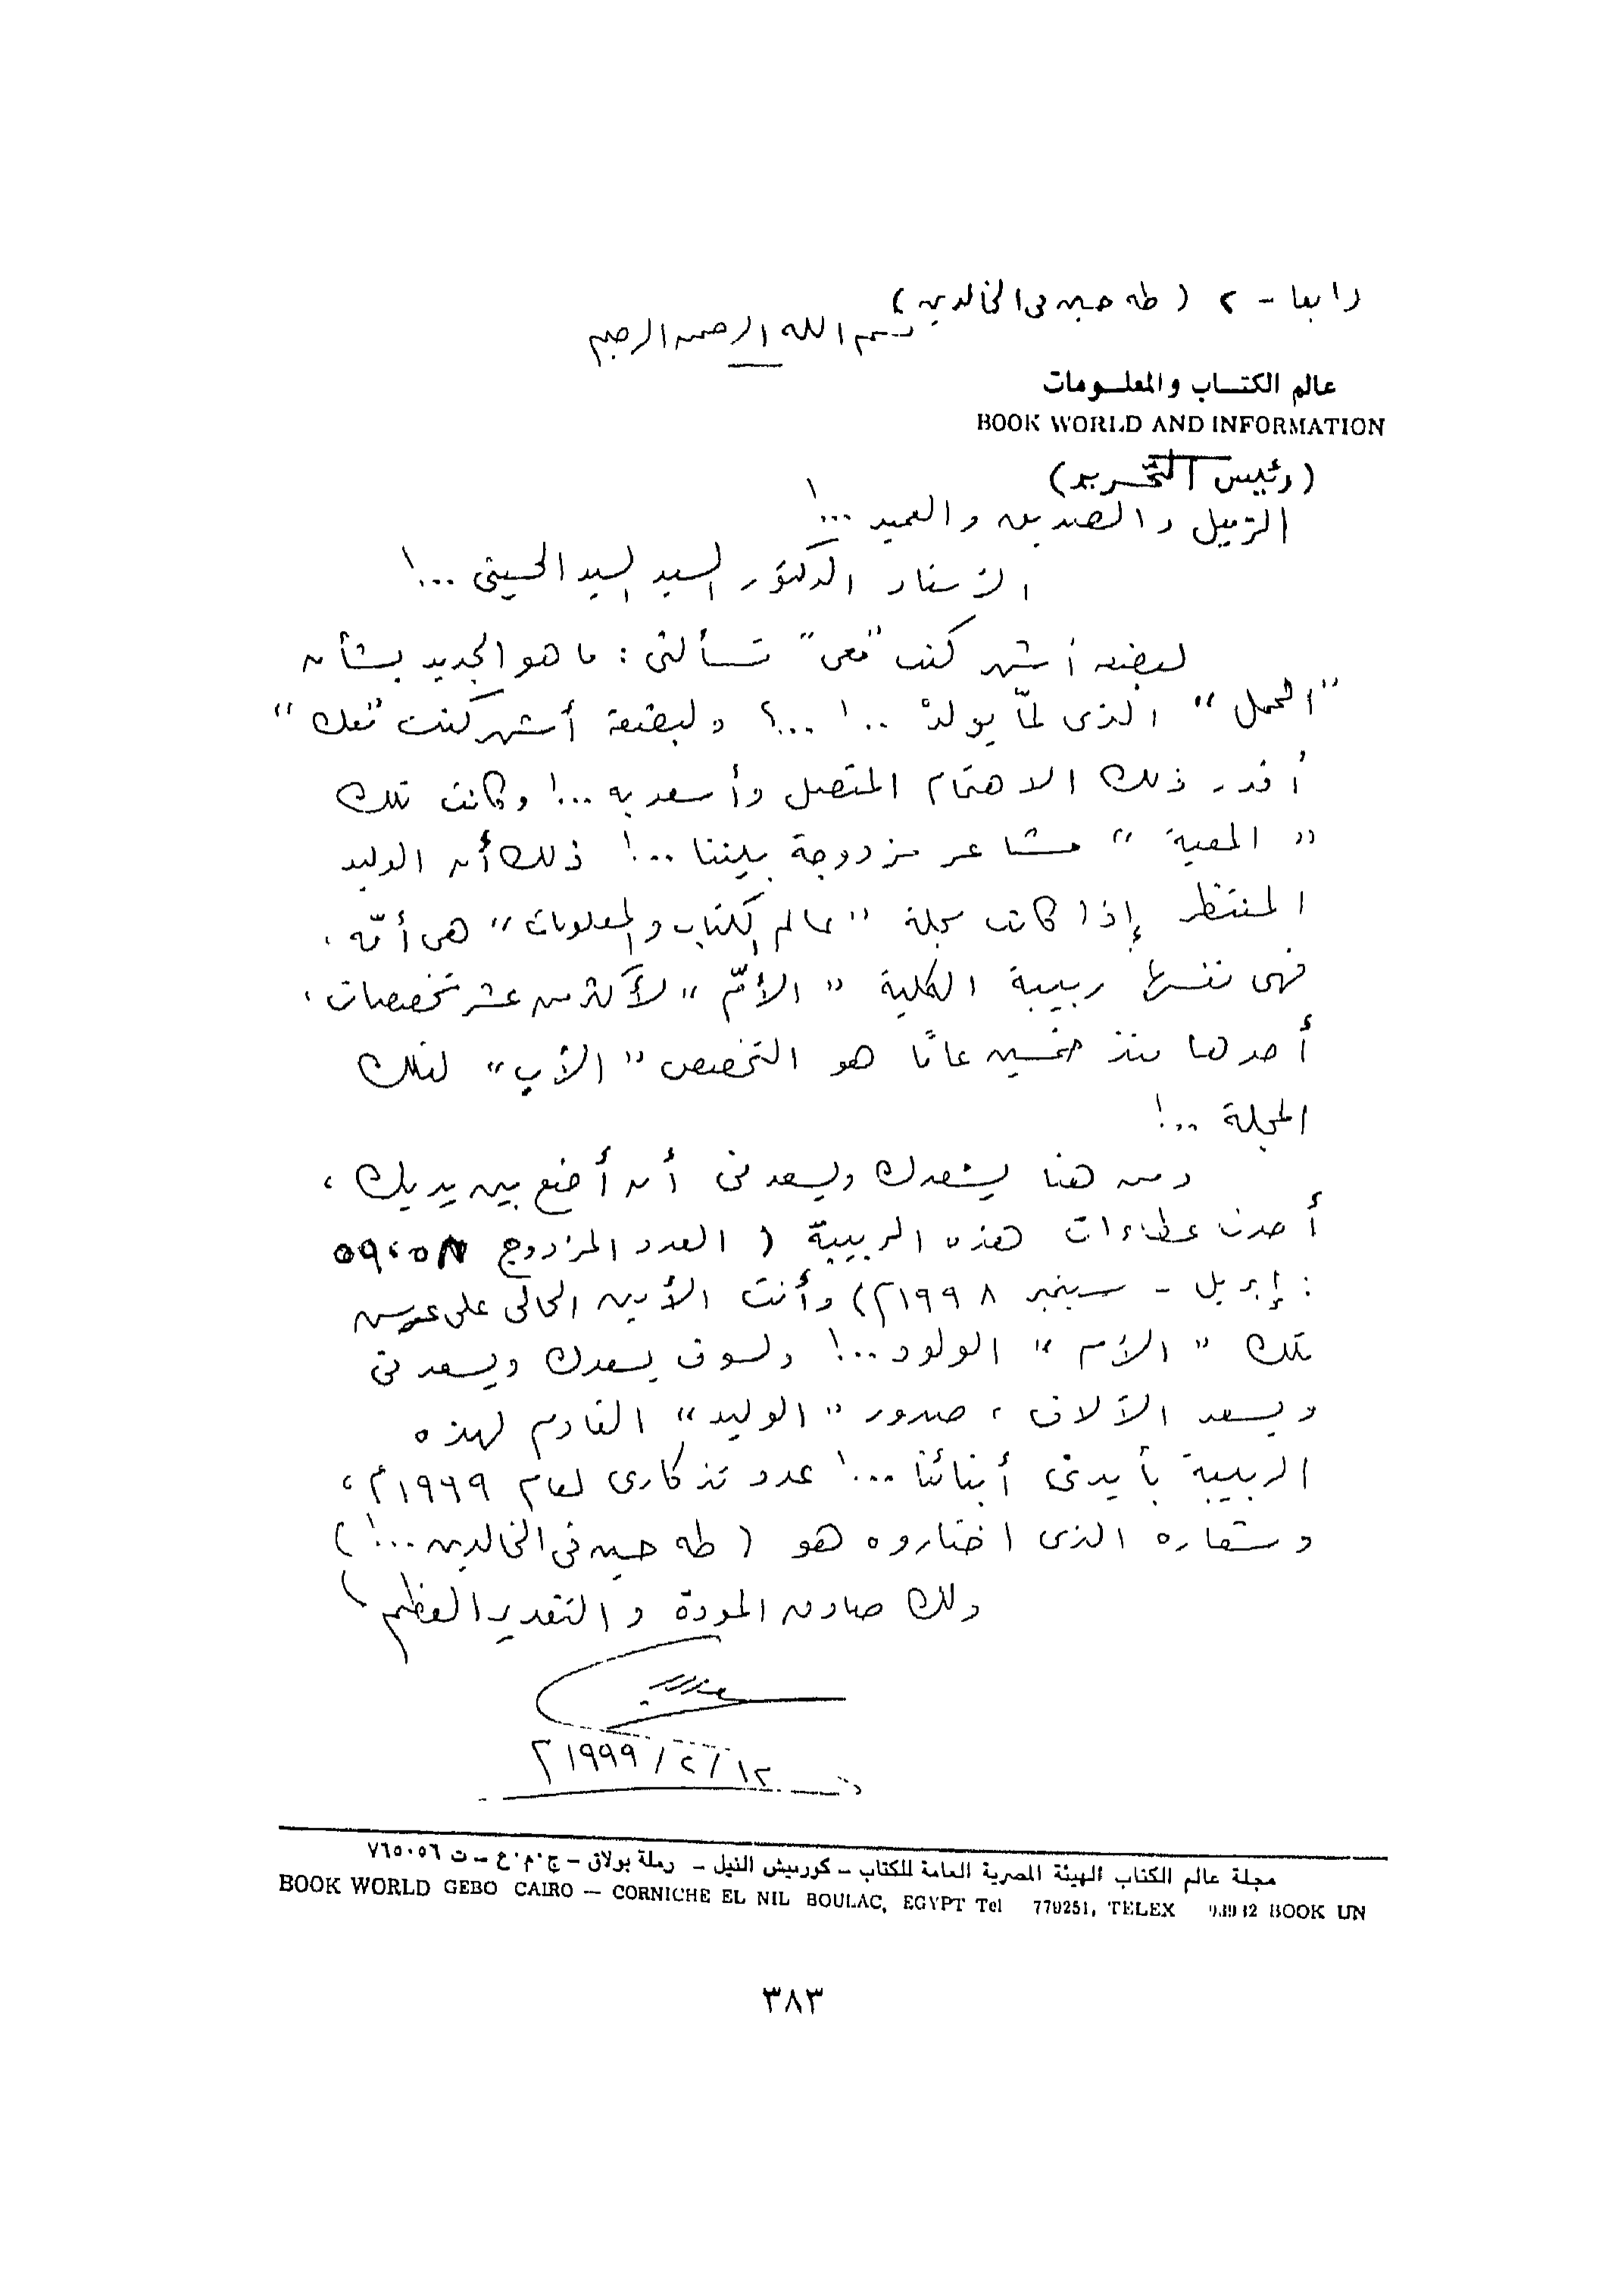 رابعا - ٢ (طه حسين فى الخالدين)
بسم الله الرحمن الرحيم
عالم الكتــاب والمعلــومات
BOOK WORLD AND INFORMATION
(رئيس التحرير)
الزميل والصديق والعميد ...!
الأستاذ الدكتور السيد السيد الحسينى ...!
لبضعة أشهر كنت "معى" تسألنى : ما هو الجديد بشأن
"الحمل" الذى لمّا يولدْ ..! ...؟ ولبضعة أشهر كنت "معك"
أقدر ذلك الاهتمام المتصل وأسعد به ...! وكانت تلك
"المعية" مشاعر مزدوجة بيننا ...! ذلك أن الوليد
المنتظر إذا كانت مجلة "عالم الكتاب والمعلومات" هى أمّه ،
فهى نفسها ربيبة الكلية "الأمّ" لأكثر من عشر تخصصات ،
أحدها منذ خمسين عامًا هو التخصص "الأب" لتلك
المجلة ..!
ومن هنا يسعدك ويسعدنى أن أضع بين يديك ،
أحدث عطاءات هذه الربيبة (العدد المزدوج ٥٨ ، ٥٩
: إبريل - سبتمبر ١٩٩٨م) وأنت الأمين الحالى على عرس
تلك "الأم" الولود ...! ولسوف يسعدك ويسعدنى
ويسعد الآلاف ، صدور "الوليد" القادم لهذه
الربيبة بأيدى أبنائنا ...! عدد تذكارى لعام ١٩٩٩م ،
وشعاره الذى اختاروه هو (طه حسين فى الخالدين ...!)
ولك صادق المودة والتقدير العظيم
١٢/٢/١٩٩٩م
مجلة عالم الكتاب الهيئة المصرية العامة للكتاب – كورنيش النيل – رملة بولاق – ج.م.ع – ت ٧٦٥٠٥٦
BOOK WORLD GEBO CAIRO — CORNICHE EL NIL BOULAC, EGYPT Tel 770251, TELEX 93932 BOOK UN
٣٨٣